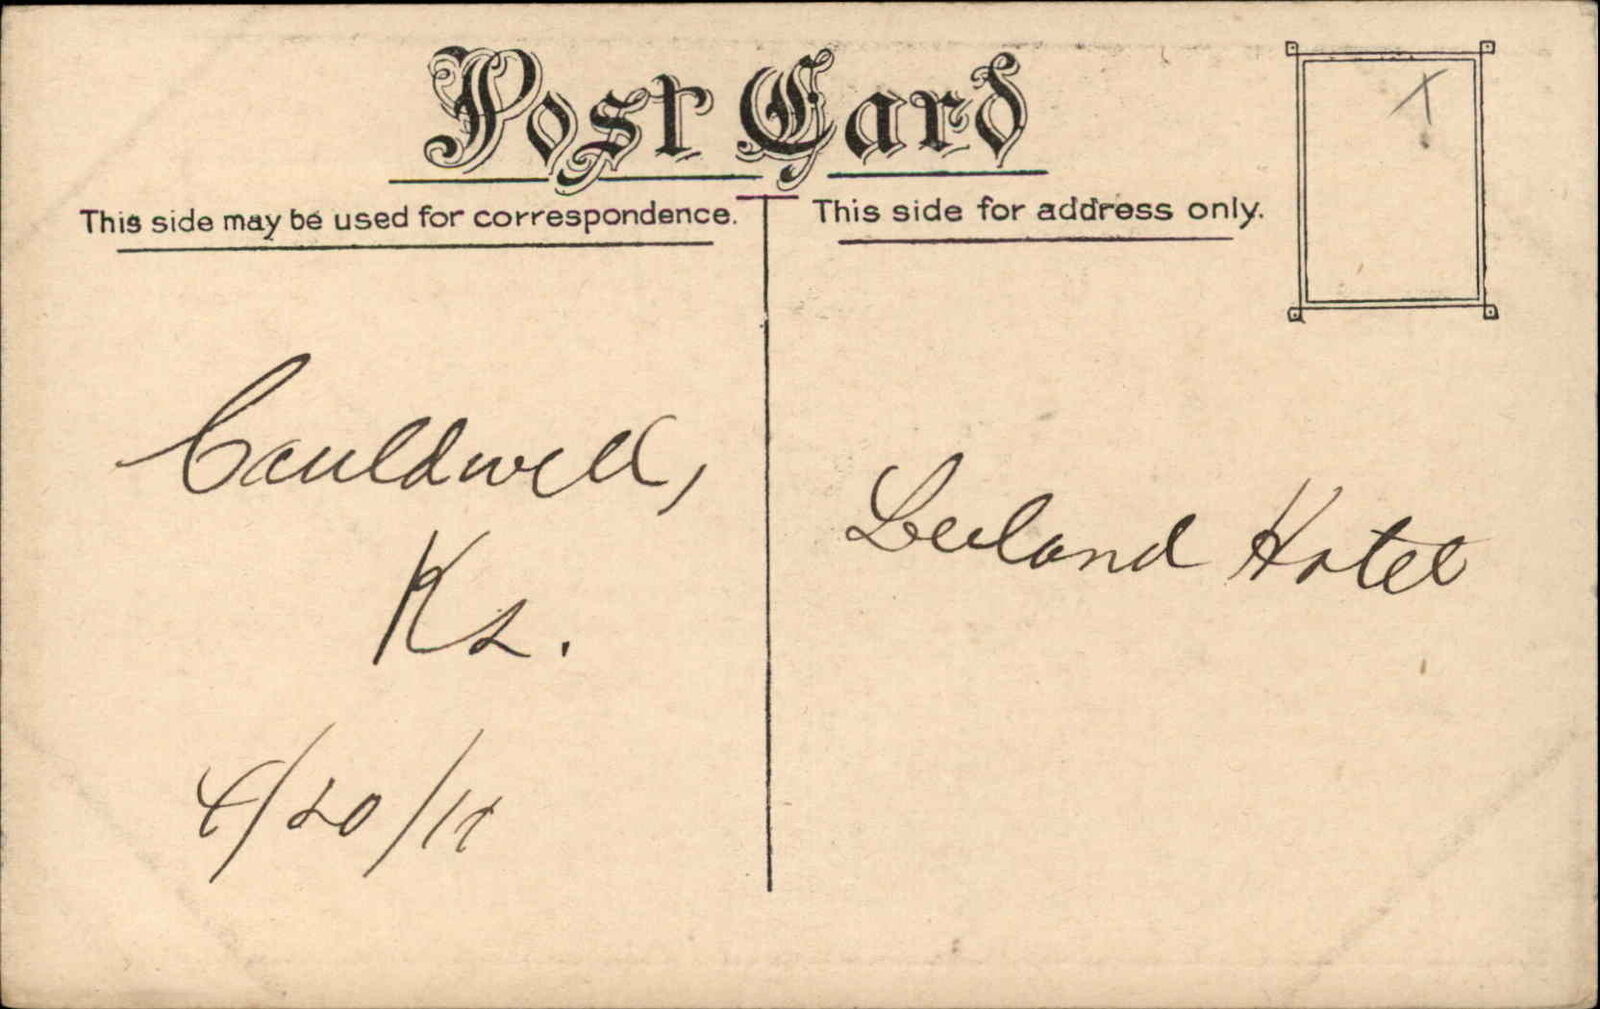 Post Card
This side may be used for correspondence.
This side for address only.
Cauldwell,
Ks.
Leland Hotel